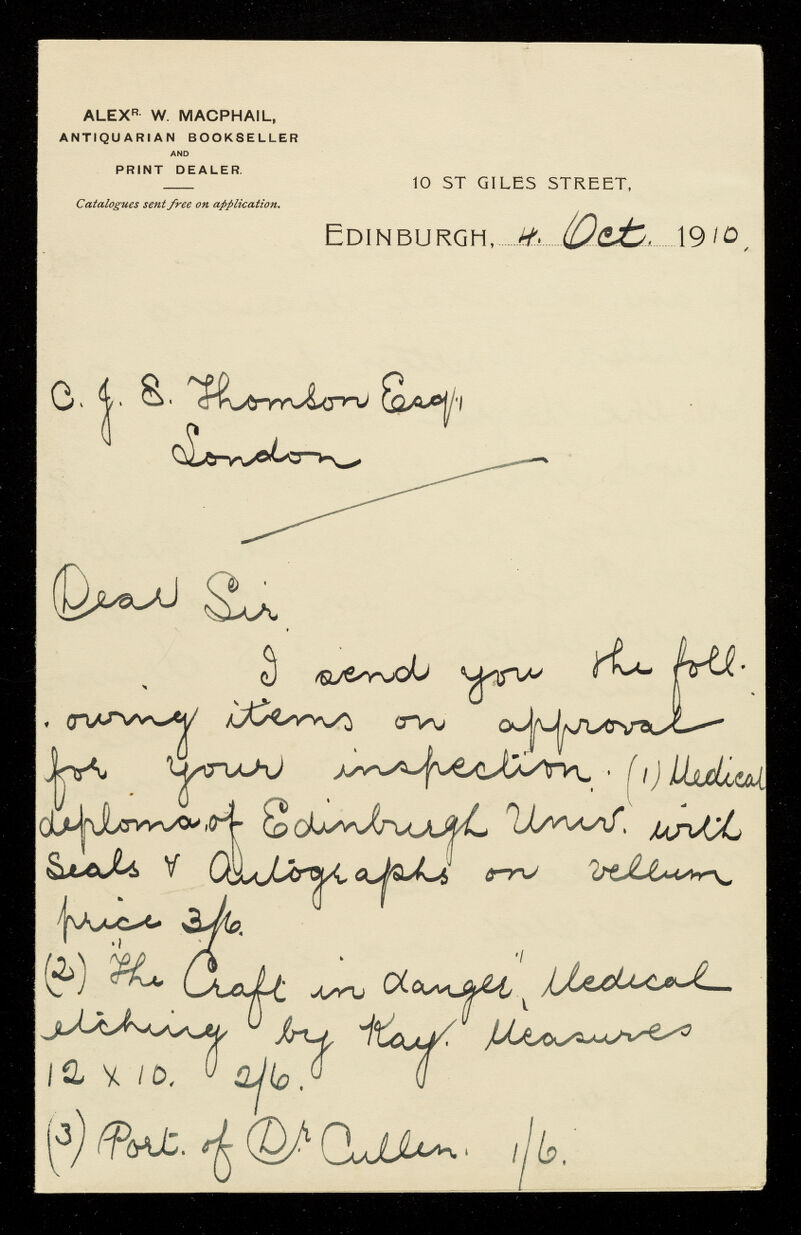 ALEXR. W. MACPHAIL,
ANTIQUARIAN BOOKSELLER
AND
PRINT DEALER.
Catalogues sent free on application.
10 ST GILES STREET,
EDINBURGH, 4. Oct. 1910.
C. J. S. Thomson Esq.,
London
Dear Sir
I send you the foll-
owing items on approval
for your inspection. (1) Medical
diploma, of Edinburgh Univ. with
Seals & Autographs on vellum
price 3/6.
(2) "The Craft in danger", Medical
etching by Kay. Measures
12 X 10. 2/6.
(3) Port. of Dr Cullen. 1/6.